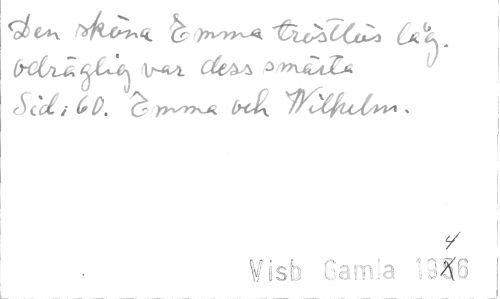 Den sköna Emma tröstlös låg.
odräglig var dess smärta
Sid: 60. Emma och Wilhelm.
4
Visb Gamla 1986